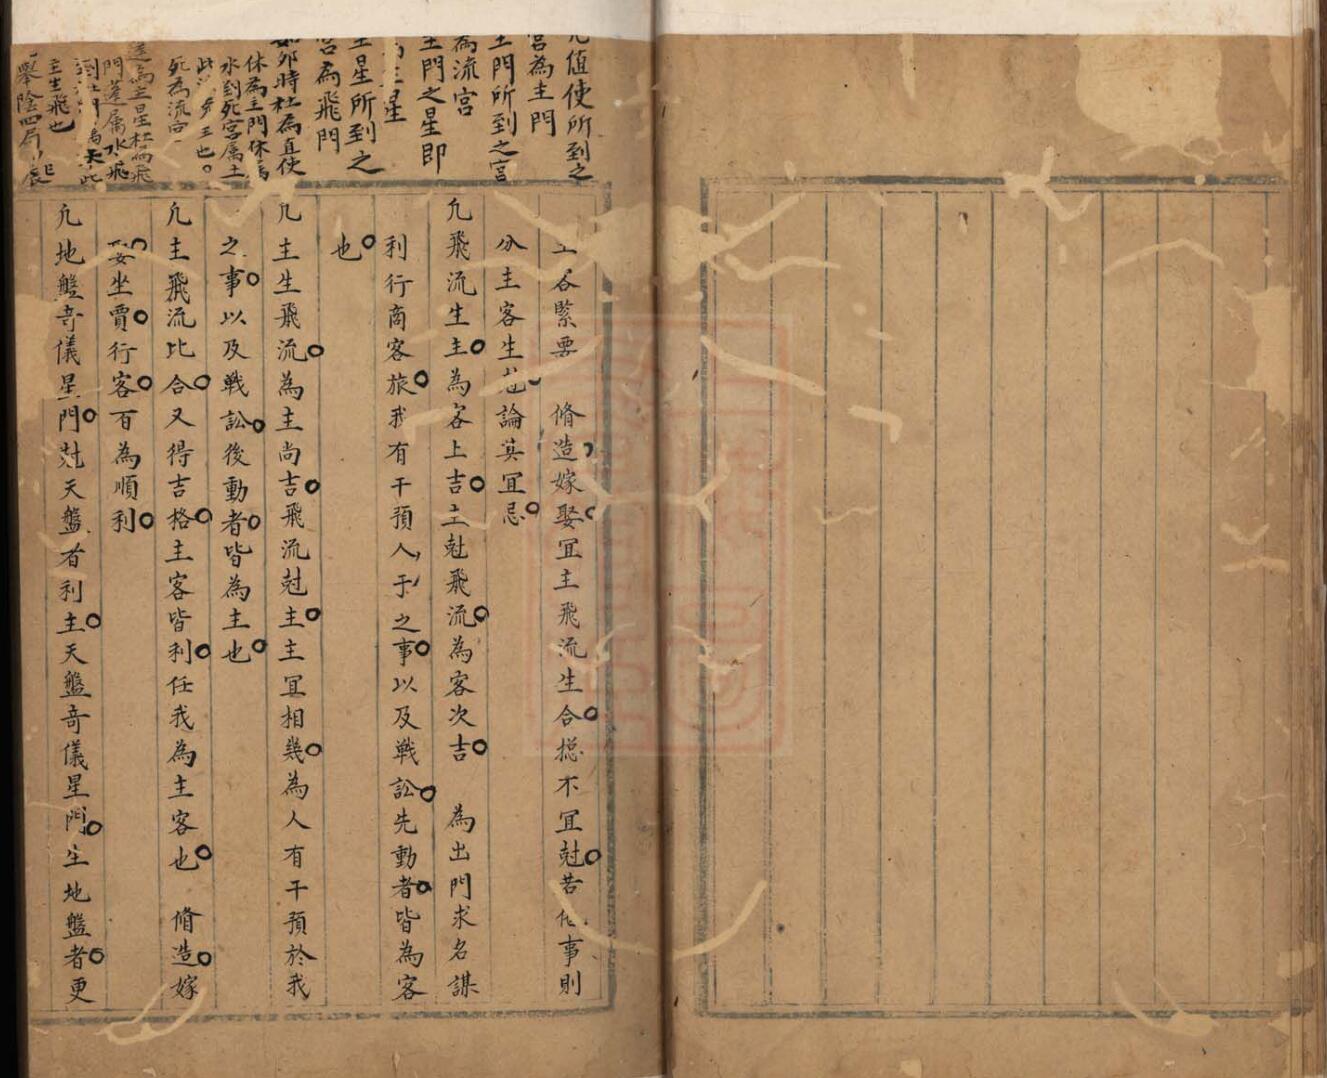 凢值使所到之
宮為主門
主門所到之宮
為流宮
主門之星即
為主星
主星所到之
宮為飛門
如夘時杜為直使
休為主門休為
水到死宮属土
死為流宮
蓬為主星杜為飛
門蓬属水飛
主生飛也
舉陰四局
主客緊要 脩造嫁娶冝主飛流生合揔不冝尅若他事則
分主客生尅論其冝忌
凢飛流生主為客上吉主尅飛流為客次吉 為出門求名謀
利行商客旅我有干預人于之事以及戦訟先動者皆為客
也
凢主生飛流為主尚吉飛流尅主主冝相幾為人有干預於我
之事以及戦訟後動者皆為主也
凢主飛流比合又得吉格主客皆利任我為主客也 脩造嫁
娶坐賈行客百為順利
凢地盤竒儀星門尅天盤者利主天盤竒儀星門生地盤者更